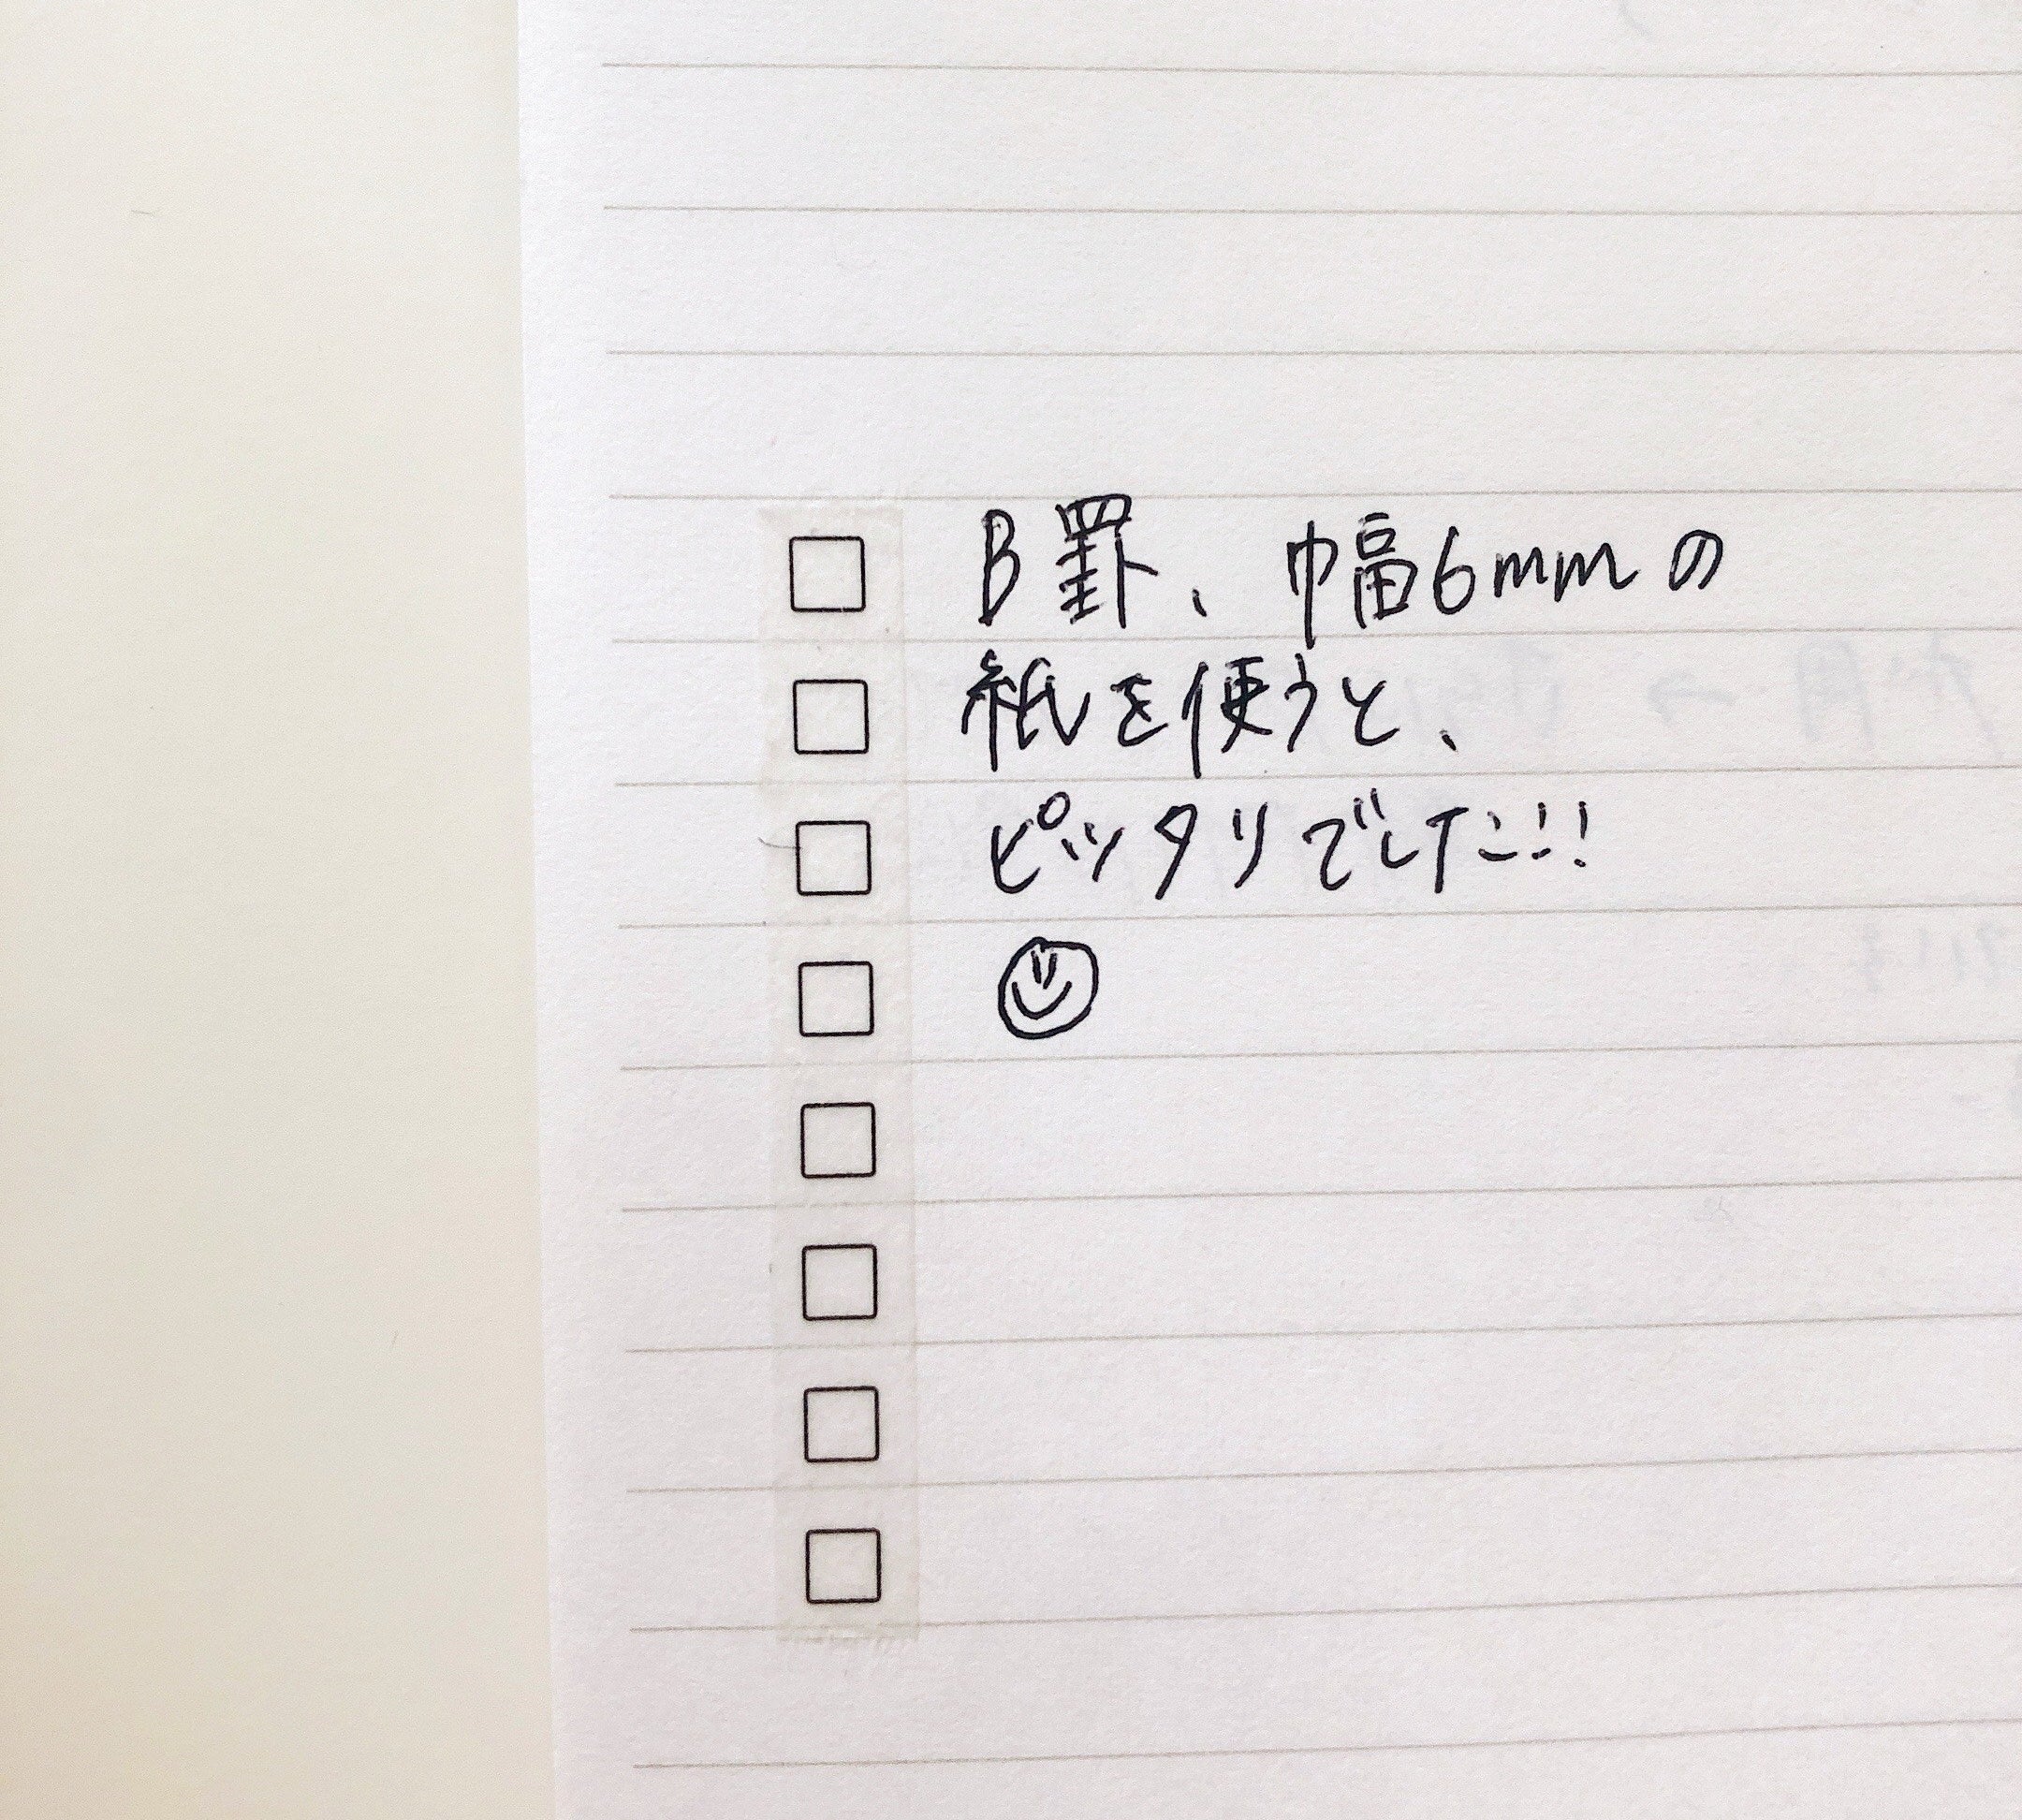 □ B罫、幅6mmの
□ 紙を使うと、
□ ピッタリでした!!!
□ ☺
□
□
□
□